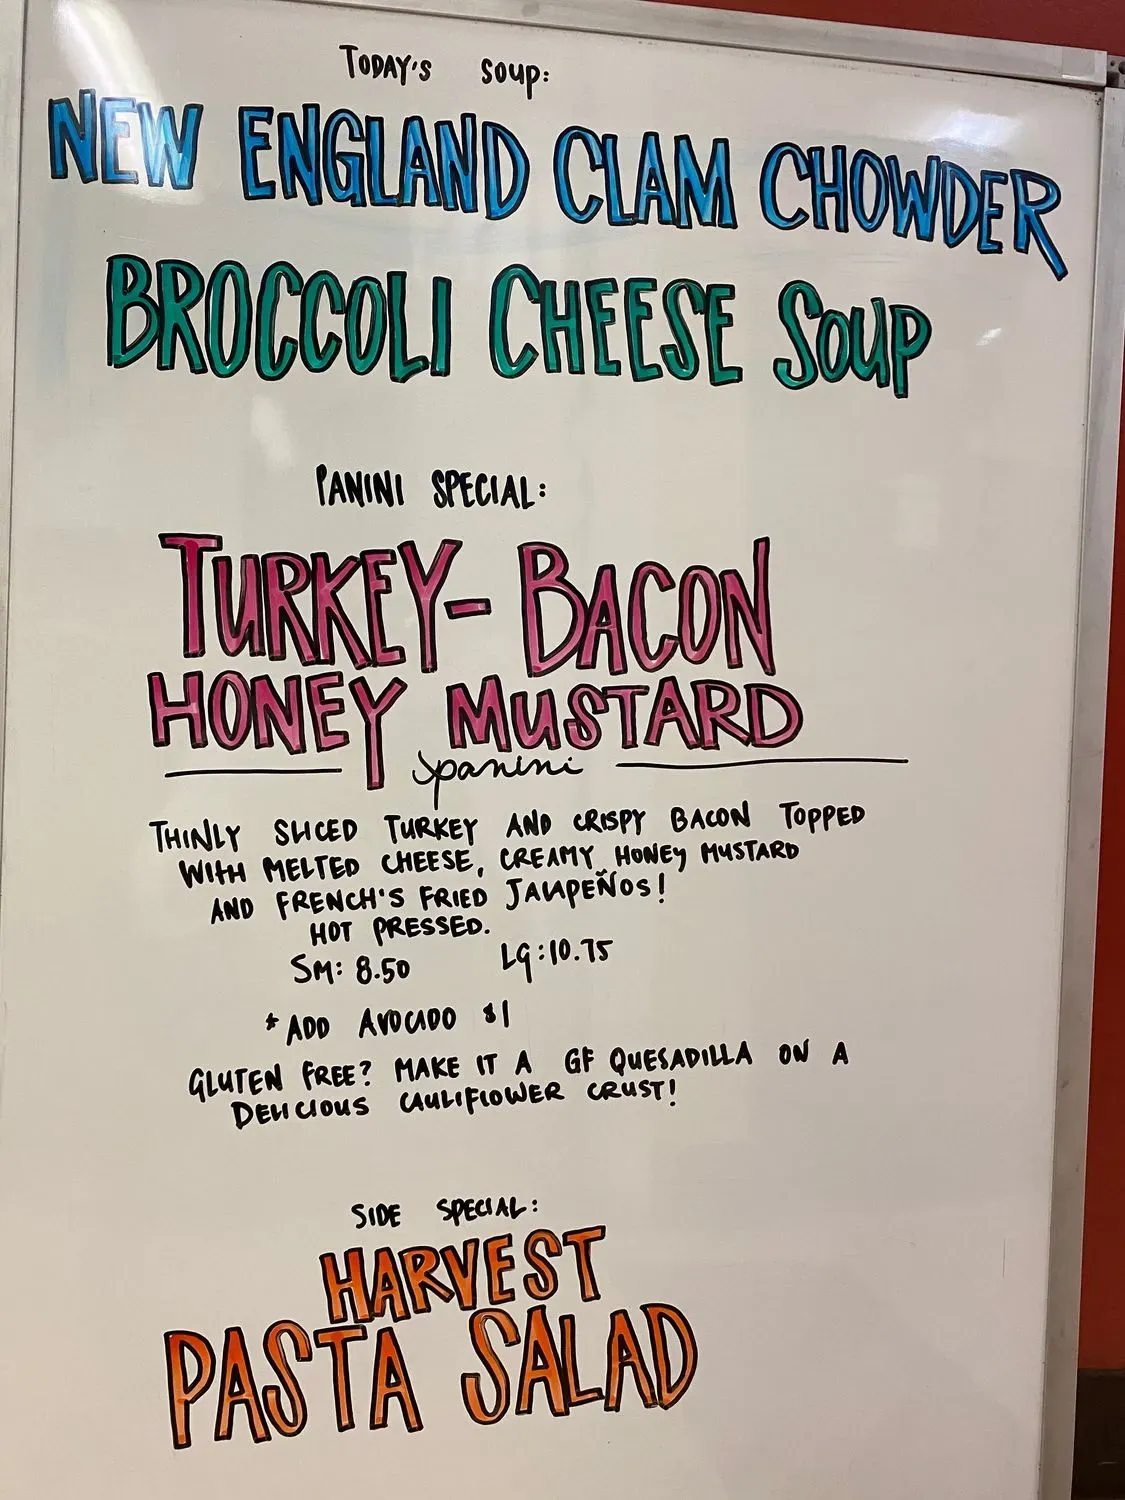 TODAY'S SOUP:
NEW ENGLAND CLAM CHOWDER
BROCCOLI CHEESE SOUP
PANINI SPECIAL:
TURKEY-BACON
HONEY MUSTARD
panini
THINLY SLICED TURKEY AND CRISPY BACON TOPPED
WITH MELTED CHEESE, CREAMY HONEY MUSTARD
AND FRENCH'S FRIED JALAPEÑOS!
HOT PRESSED.
SM: 8.50 LG: 10.75
*ADD AVOCADO $1
GLUTEN FREE? MAKE IT A GF QUESADILLA ON A
DELICIOUS CAULIFLOWER CRUST!
SIDE SPECIAL:
HARVEST
PASTA SALAD